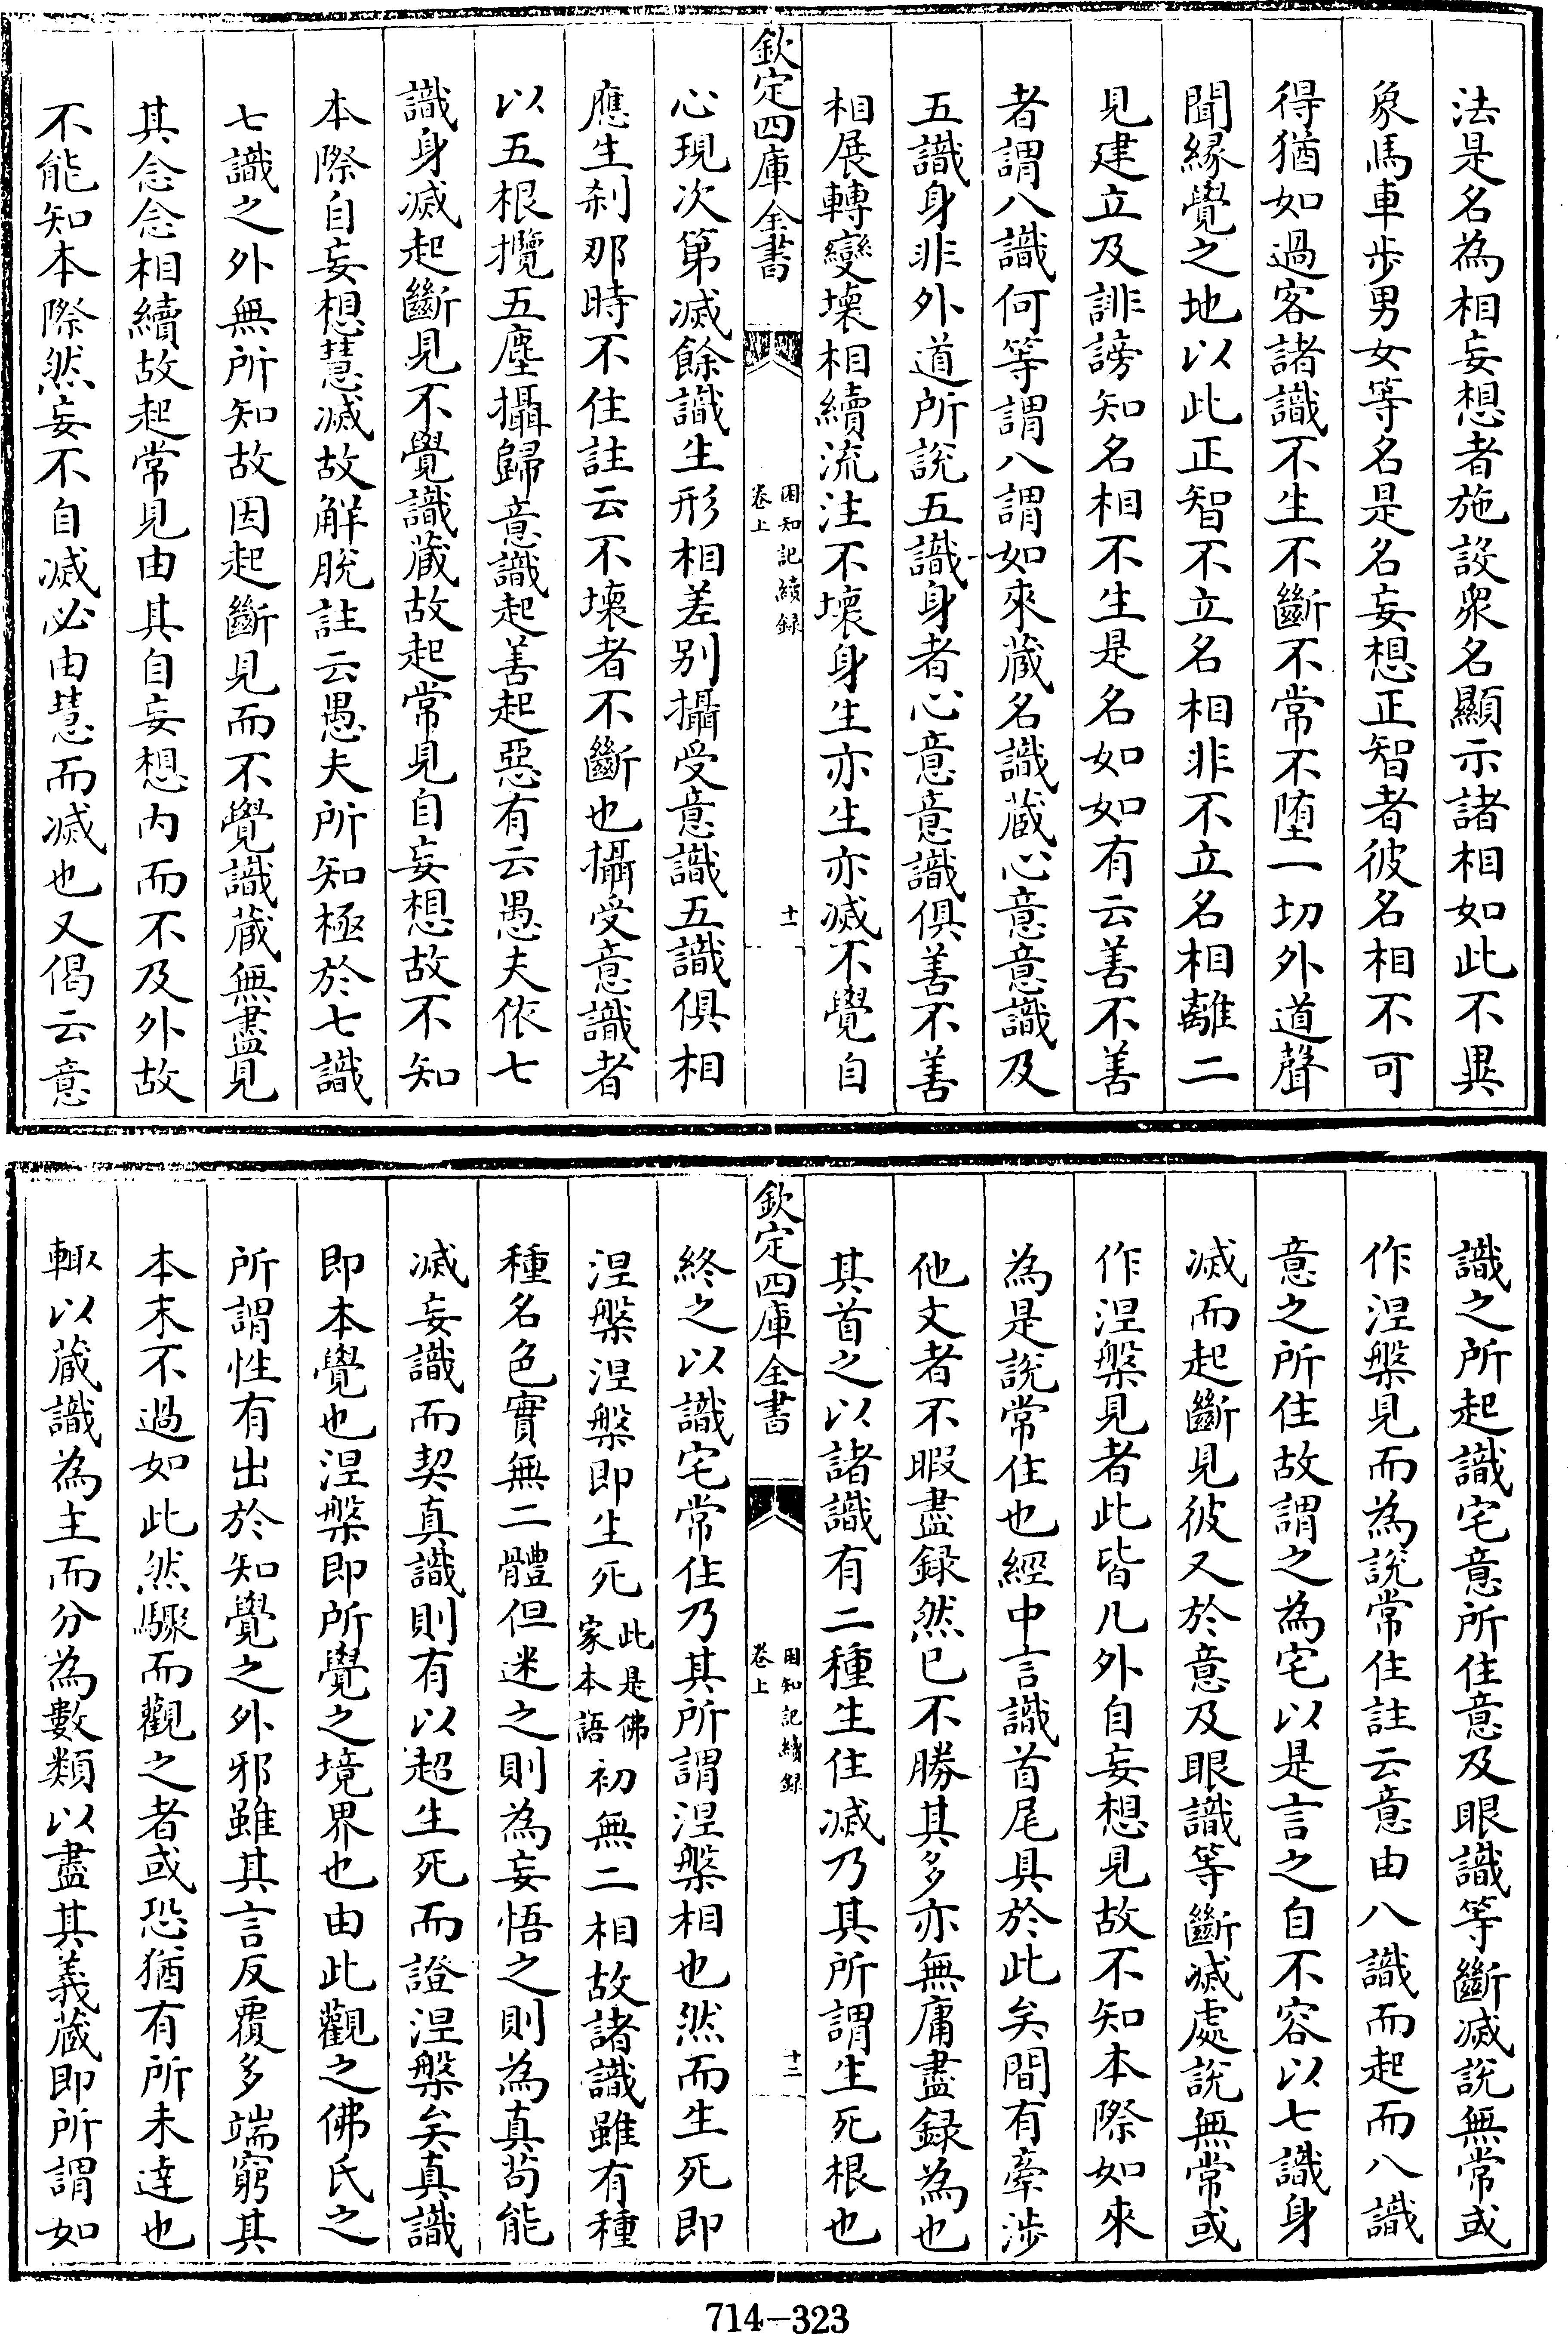 法是名為相妄想者施設衆名顯示諸相如此不異
象馬車歩男女等名是名妄想正智者彼名相不可
得猶如過客諸識不生不斷不常不墮一切外道聲
聞緣覺之地以此正智不立名相非不立名相離二
見建立及誹謗知名相不生是名如如有云善不善
者謂八識何等謂八謂如來藏名識藏心意意識及
五識身非外道所說五識身者心意意識俱善不善
相展轉變壞相續流注不壞身生亦生亦滅不覺自
欽定四庫全書
困知記續録
卷上
十一
心現次第滅餘識生形相差别攝受意識五識俱相
應生刹那時不住註云不壞者不斷也攝受意識者
以五根攬五塵攝歸意識起善起惡有云愚夫依七
識身滅起斷見不覺識藏故起常見自妄想故不知
本際自妄想慧滅故解脱註云愚夫所知極於七識
七識之外無所知故因起斷見而不覺識藏無盡見
其念念相續故起常見由其自妄想内而不及外故
不能知本際然妄不自滅必由慧而滅也又偈云意
識之所起識宅意所住意及眼識等斷滅說無常或
作涅槃見而為說常住註云意由八識而起而八識
意之所住故謂之為宅以是言之自不容以七識身
滅而起斷見彼又於意及眼識等斷滅處說無常或
作涅槃見者此皆凡外自妄想見故不知本際如來
為是說常住也經中言識首尾具於此矣間有牽涉
他文者不暇盡録然已不勝其多亦無庸盡録為也
其首之以諸識有二種生住滅乃其所謂生死根也
欽定四庫全書
困知記續録
卷上
十二
終之以識宅常住乃其所謂涅槃相也然而生死即
涅槃涅槃即生死此是佛家本語初無二相故諸識雖有種
種名色實無二體但迷之則為妄悟之則為真茍能
滅妄識而契真識則有以超生死而證涅槃矣真識
即本覺也涅槃即所覺之境界也由此觀之佛氏之
所謂性有出於知覺之外邪雖其言反覆多端窮其
本末不過如此然驟而觀之者或恐猶有所未達也
輒以藏識為主而分為數類以盡其義藏即所謂如
714-323